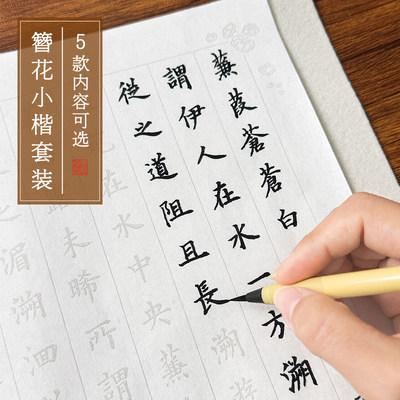 簪花小楷套装
5款内容可选
蒹葭蒼蒼白
謂伊人在水一方溯
從之道阻且長溯
在水中央蒹
未晞所謂
湄溯洄